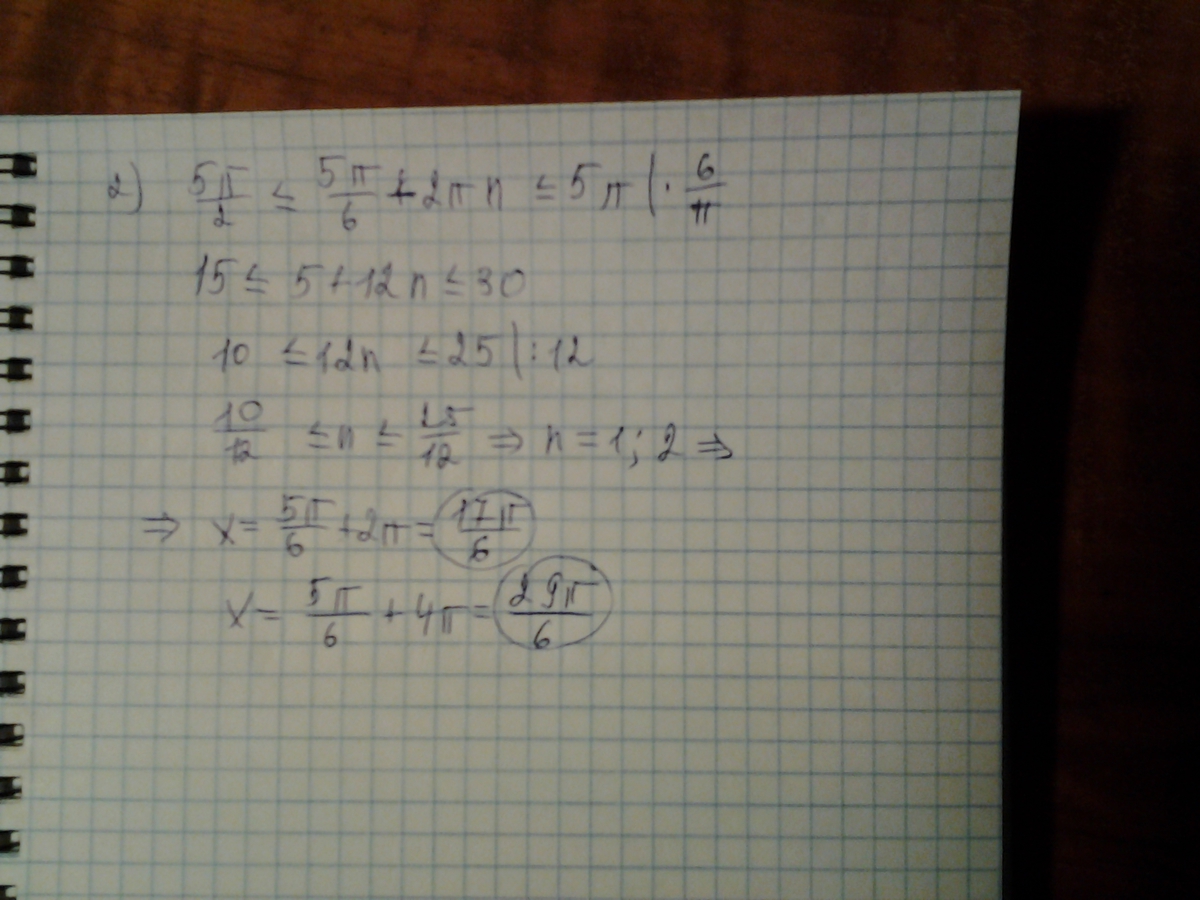 2) 5π/2 ≤ 5π/6 + 2πn ≤ 5π | · 6/π
15 ≤ 5 + 12n ≤ 30
10 ≤ 12n ≤ 25 | : 12
10/12 ≤ n ≤ 25/12 ⇒ n = 1; 2 ⇒
⇒ x = 5π/6 + 2π = 17π/6
x = 5π/6 + 4π = 29π/6